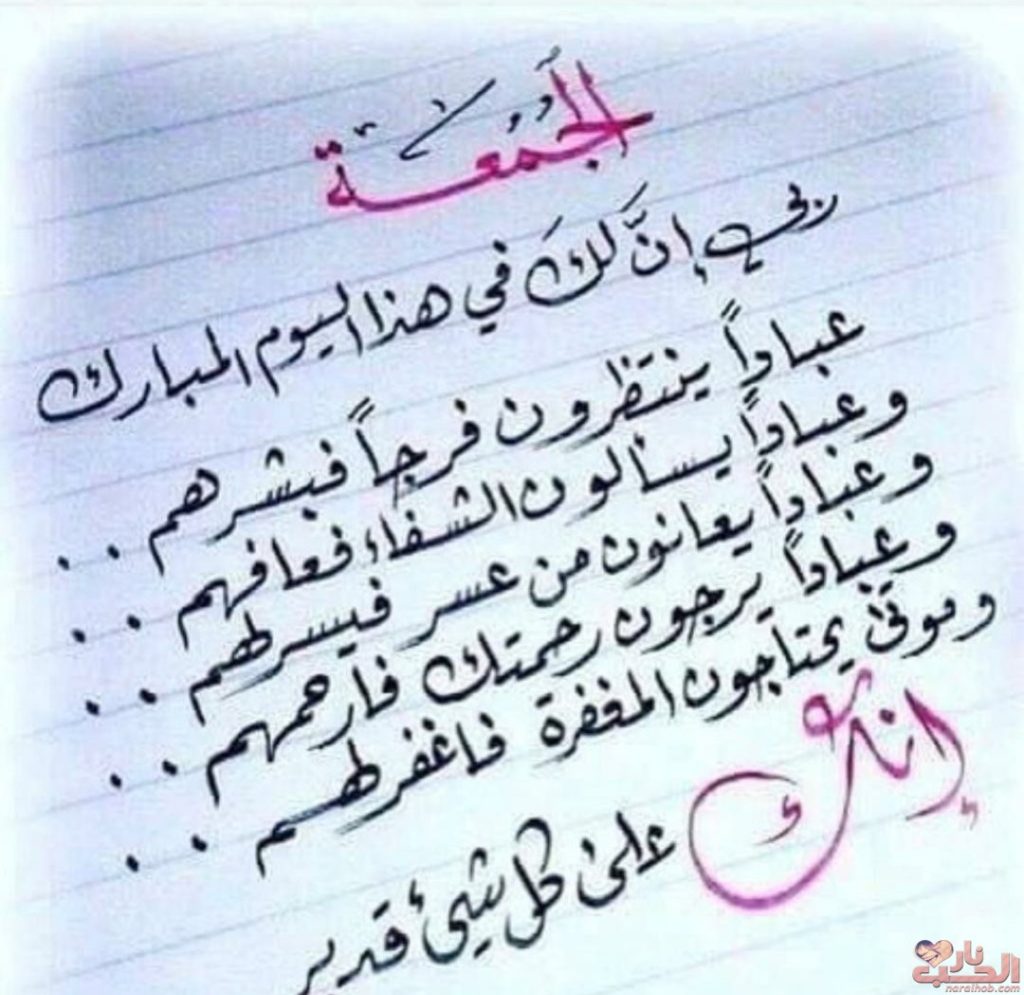 الجُمُعَة
ربي إنَّ لكَ في هذا اليوم المبارك
عباداً ينتظرون فرجاً فبشرهم . .
وعباداً يسألون الشفاء فعافهم . .
وعباداً يعانون من عسر فيسر لهم . .
وعباداً يرجون رحمتك فارحمهم . .
وموتى يحتاجون المغفرة فاغفر لهم . .
إنك
على كل شيئ قدير
نار
الحب
naralhob.com